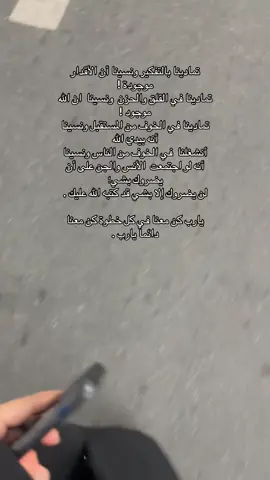 تمادينا بالتفكير ونسينا أن الأقدار
موجودة !
تمادينا في القلق والحزن ونسينا ان الله
موجود !
تمادينا في الخوف من المستقبل ونسينا
أنه بيدي الله
أنشغلنا في الخوف من الناس ونسينا
أنه لو اجتمعت الأنس والجن على أن
يضروك بشيءٍ
لن يضروك إلا بشي قد كتبه الله عليك .
يارب كن معنا في كل خطوة كن معنا
دائماً يارب .